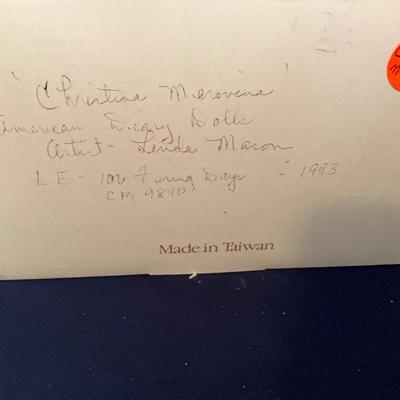 'Christina Merovina'
American Diary Dolls
Artist - Linda Mason
LE - 100 Firing Days - 1993
CM 9890
Made in Taiwan